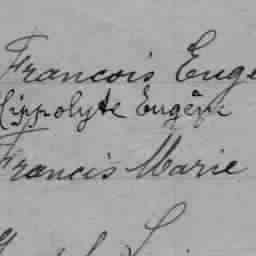 Francois Euge
Hippolyte Eugène
Francis Marie